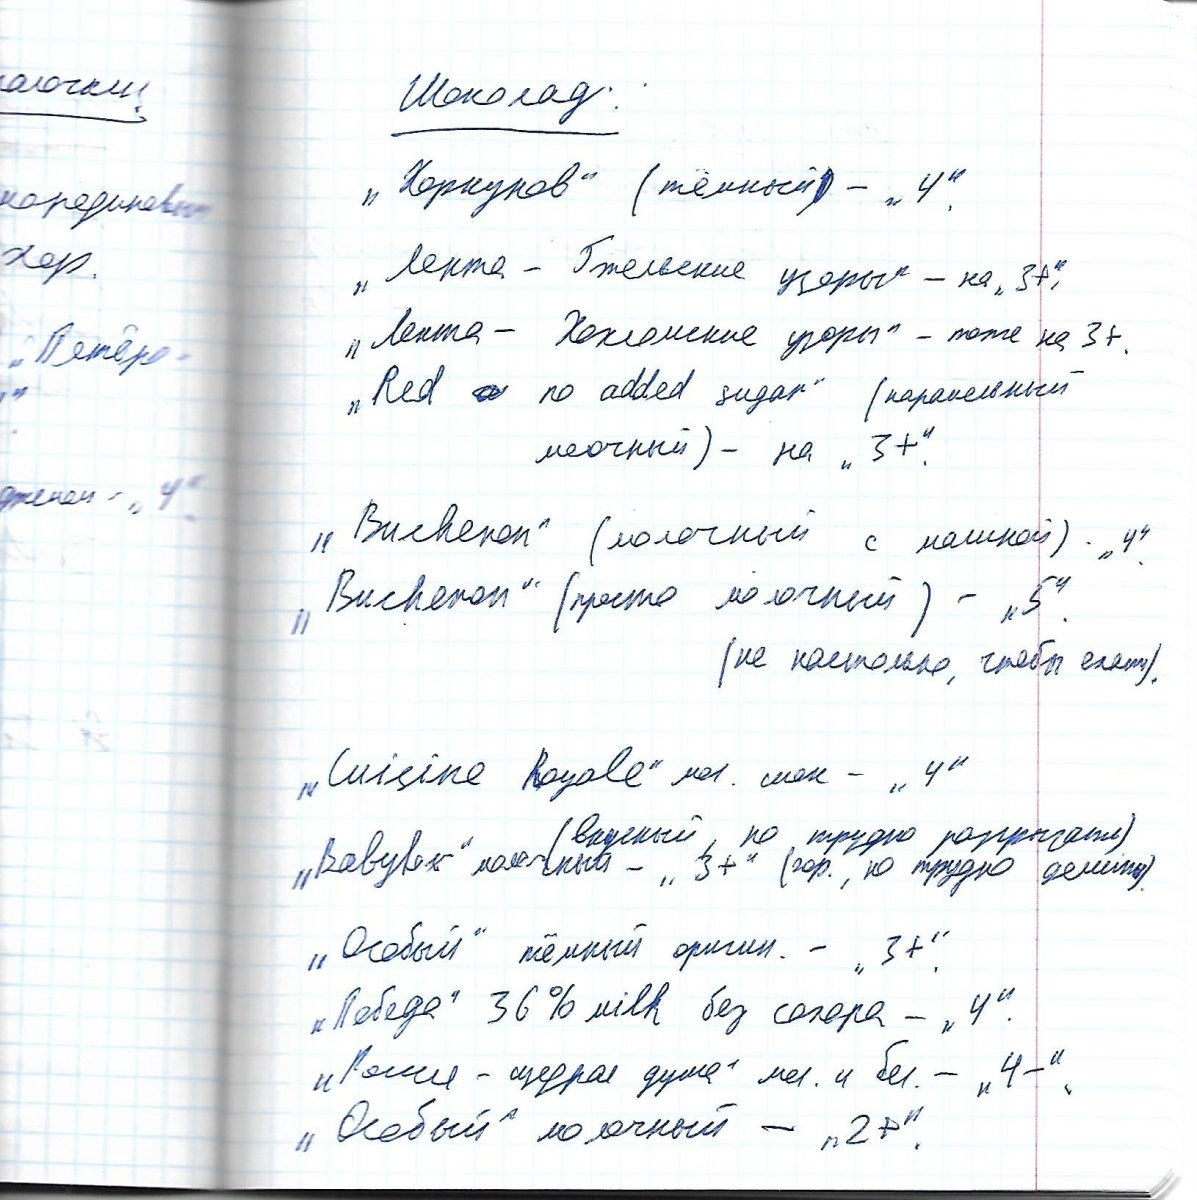 Шоколад:
„Коркунов“ (тёмный) – „4“.
„Лента – Гжельские узоры“ – на „3+“.
„Лента – Хохломские узоры“ – тоже на 3+.
„Red no added sugar“ (карамельный
молочный) – на „3+“.
„Bucheron“ (молочный с малиной) - „4“.
„Bucheron“ (просто молочный) – „5“.
(не настолько, чтобы ехать).
„Cuisine Royale“ мол. шок – „4“
(вкусный, но трудно разгрызать)
„Babyfox“ молочный – „3+“ (гор., но трудно делить).
„Особый“ тёмный оригин. – „3+“.
„Победа“ 36% milk без сахара – „4“.
„Россия – щедрая душа“ мол. и бел. – „4–“.
„Особый“ молочный – „2+“.
палочки:
хор.
„Пятёро-
“.
- „4“.